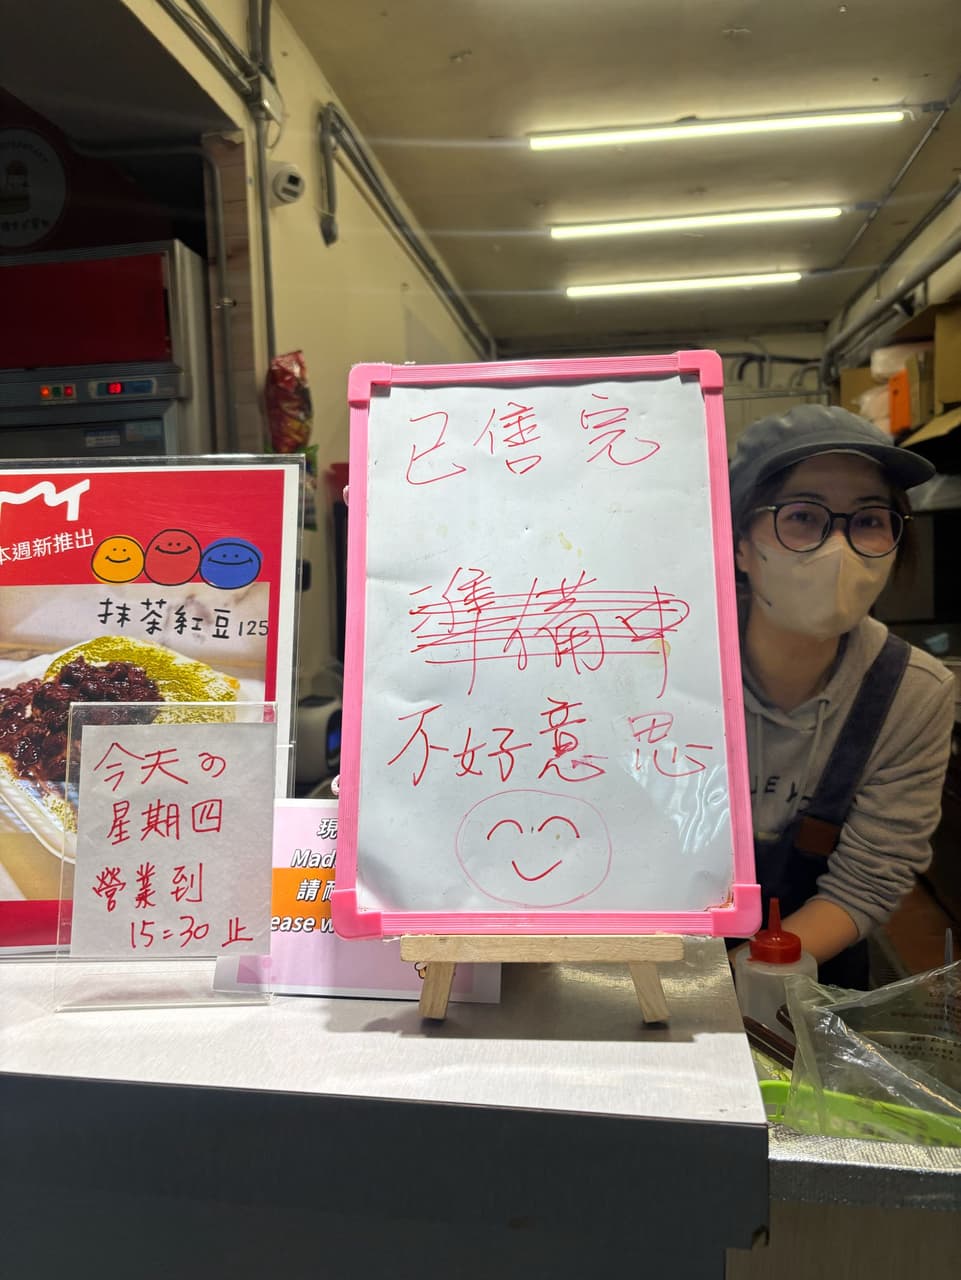 已售完
準備中
不好意思
本週新推出
抹茶紅豆125
今天の
星期四
營業到
15:30止
現
Mad
請
ease w